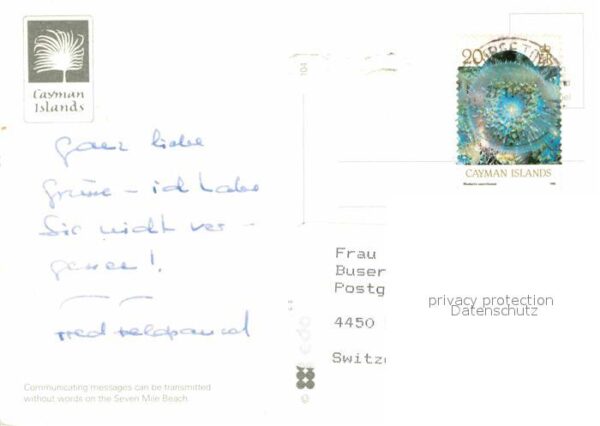 Cayman
Islands
ganz liebe
Grüsse - ich habe
Sie nicht ver-
gessen!
20
CAYMAN ISLANDS
Frau
Buser
Postg
4450
Switze
privacy protection
Datenschutz
Communicating messages can be transmitted
without words on the Seven Mile Beach.